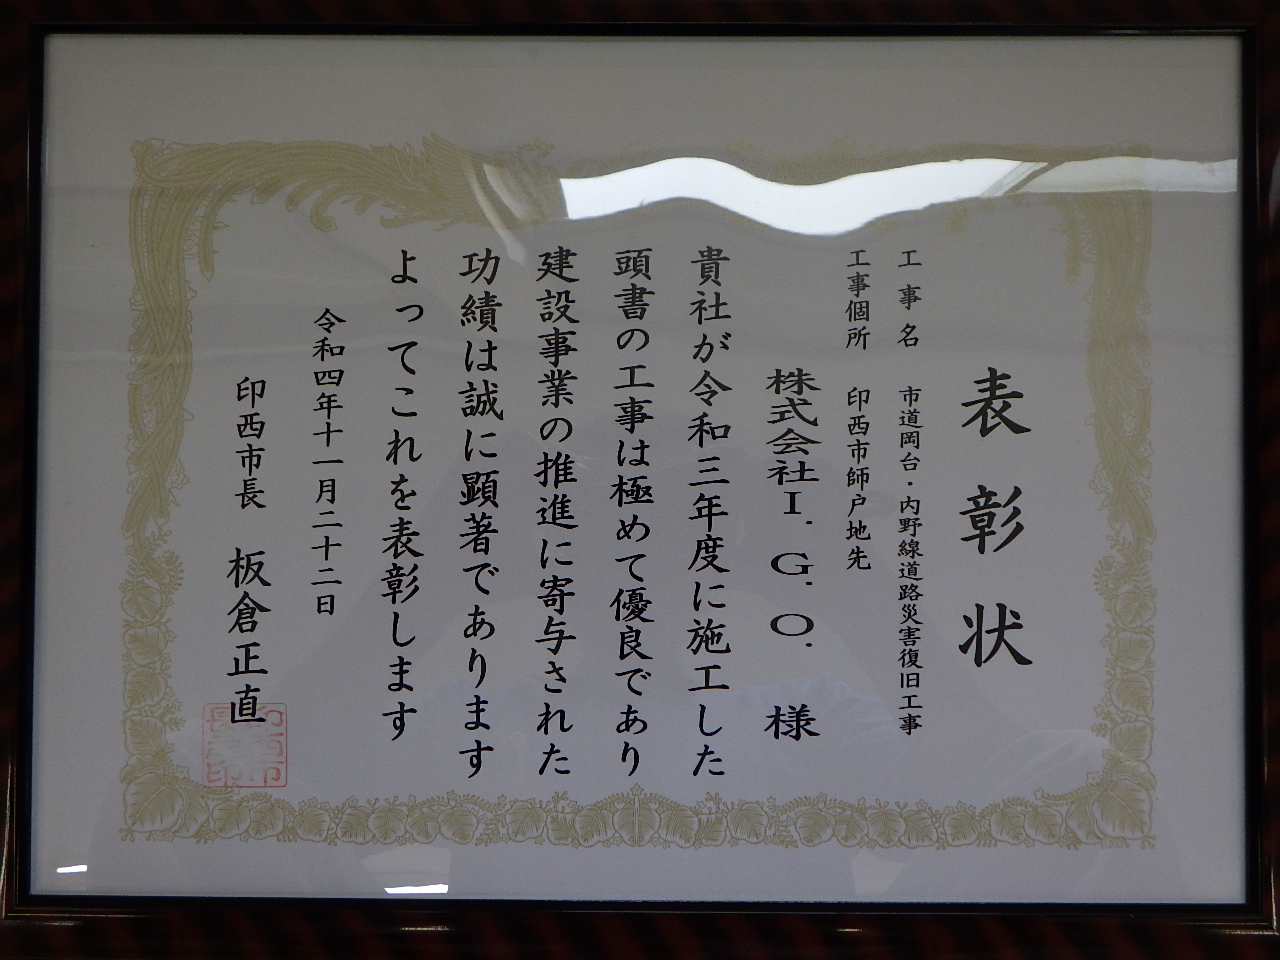 表彰状
工事名 市道岡台・内野線道路災害復旧工事
工事個所 印西市師戸地先
株式会社I.G.O. 様
貴社が令和三年度に施工した
頭書の工事は極めて優良であり
建設事業の推進に寄与された
功績は誠に顕著であります
よってこれを表彰します
令和四年十一月二十二日
印西市長 板倉正直